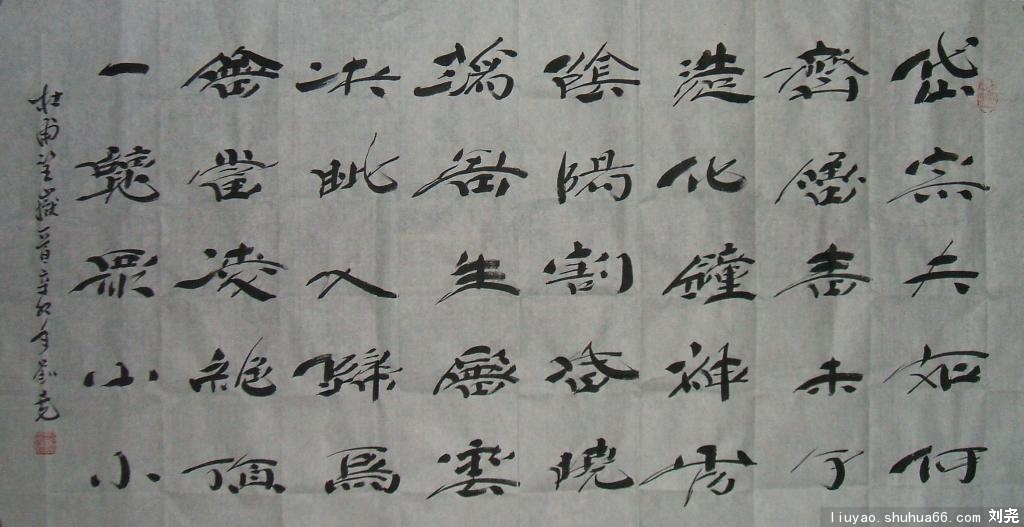 岱宗夫如何
齊魯青未了
造化鐘神秀
陰陽割昏曉
蕩胷生層雲
决眦入歸鳥
會當凌絕頂
一覽眾山小
杜甫望嶽一首辛卯年劉堯
liuyao.shuhua66.com 刘尧